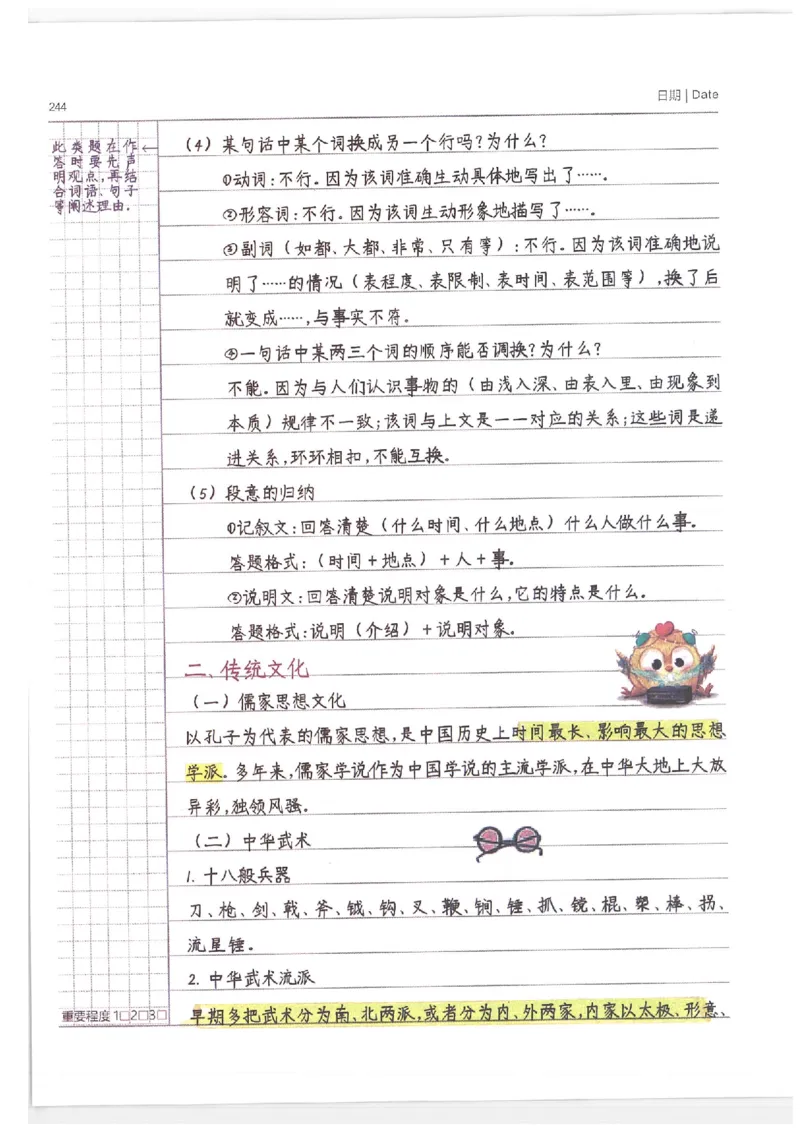 244
日期 | Date
此类题在作
答时要先声
明观点,再结
合词语、句子
等阐述理由.
(4) 某句话中某个词换成另一个行吗?为什么?
①动词:不行.因为该词准确生动具体地写出了……。
②形容词:不行.因为该词生动形象地描写了……。
③副词(如都、大都、非常、只有等):不行.因为该词准确地说
明了……的情况(表程度、表限制、表时间、表范围等),换了后
就变成……,与事实不符。
④一句话中某两三个词的顺序能否调换?为什么?
不能.因为与人们认识事物的(由浅入深、由表入里、由现象到
本质)规律不一致;该词与上文是一一对应的关系;这些词是递
进关系,环环相扣,不能互换。
(5) 段意的归纳
①记叙文:回答清楚(什么时间、什么地点)什么人做什么事。
答题格式:(时间+地点)+人+事。
②说明文:回答清楚说明对象是什么,它的特点是什么。
答题格式:说明(介绍)+说明对象。
二、传统文化
(一)儒家思想文化
以孔子为代表的儒家思想,是中国历史上时间最长、影响最大的思想
学派。多年来,儒家学说作为中国学说的主流学派,在中华大地上大放
异彩,独领风骚。
(二)中华武术
1. 十八般兵器
刀、枪、剑、戟、斧、钺、钩、叉、鞭、锏、锤、抓、镋、棍、槊、棒、拐、
流星锤。
2. 中华武术流派
早期多把武术分为南、北两派,或者分为内、外两家,内家以太极、形意、
重要程度 1□2□3□